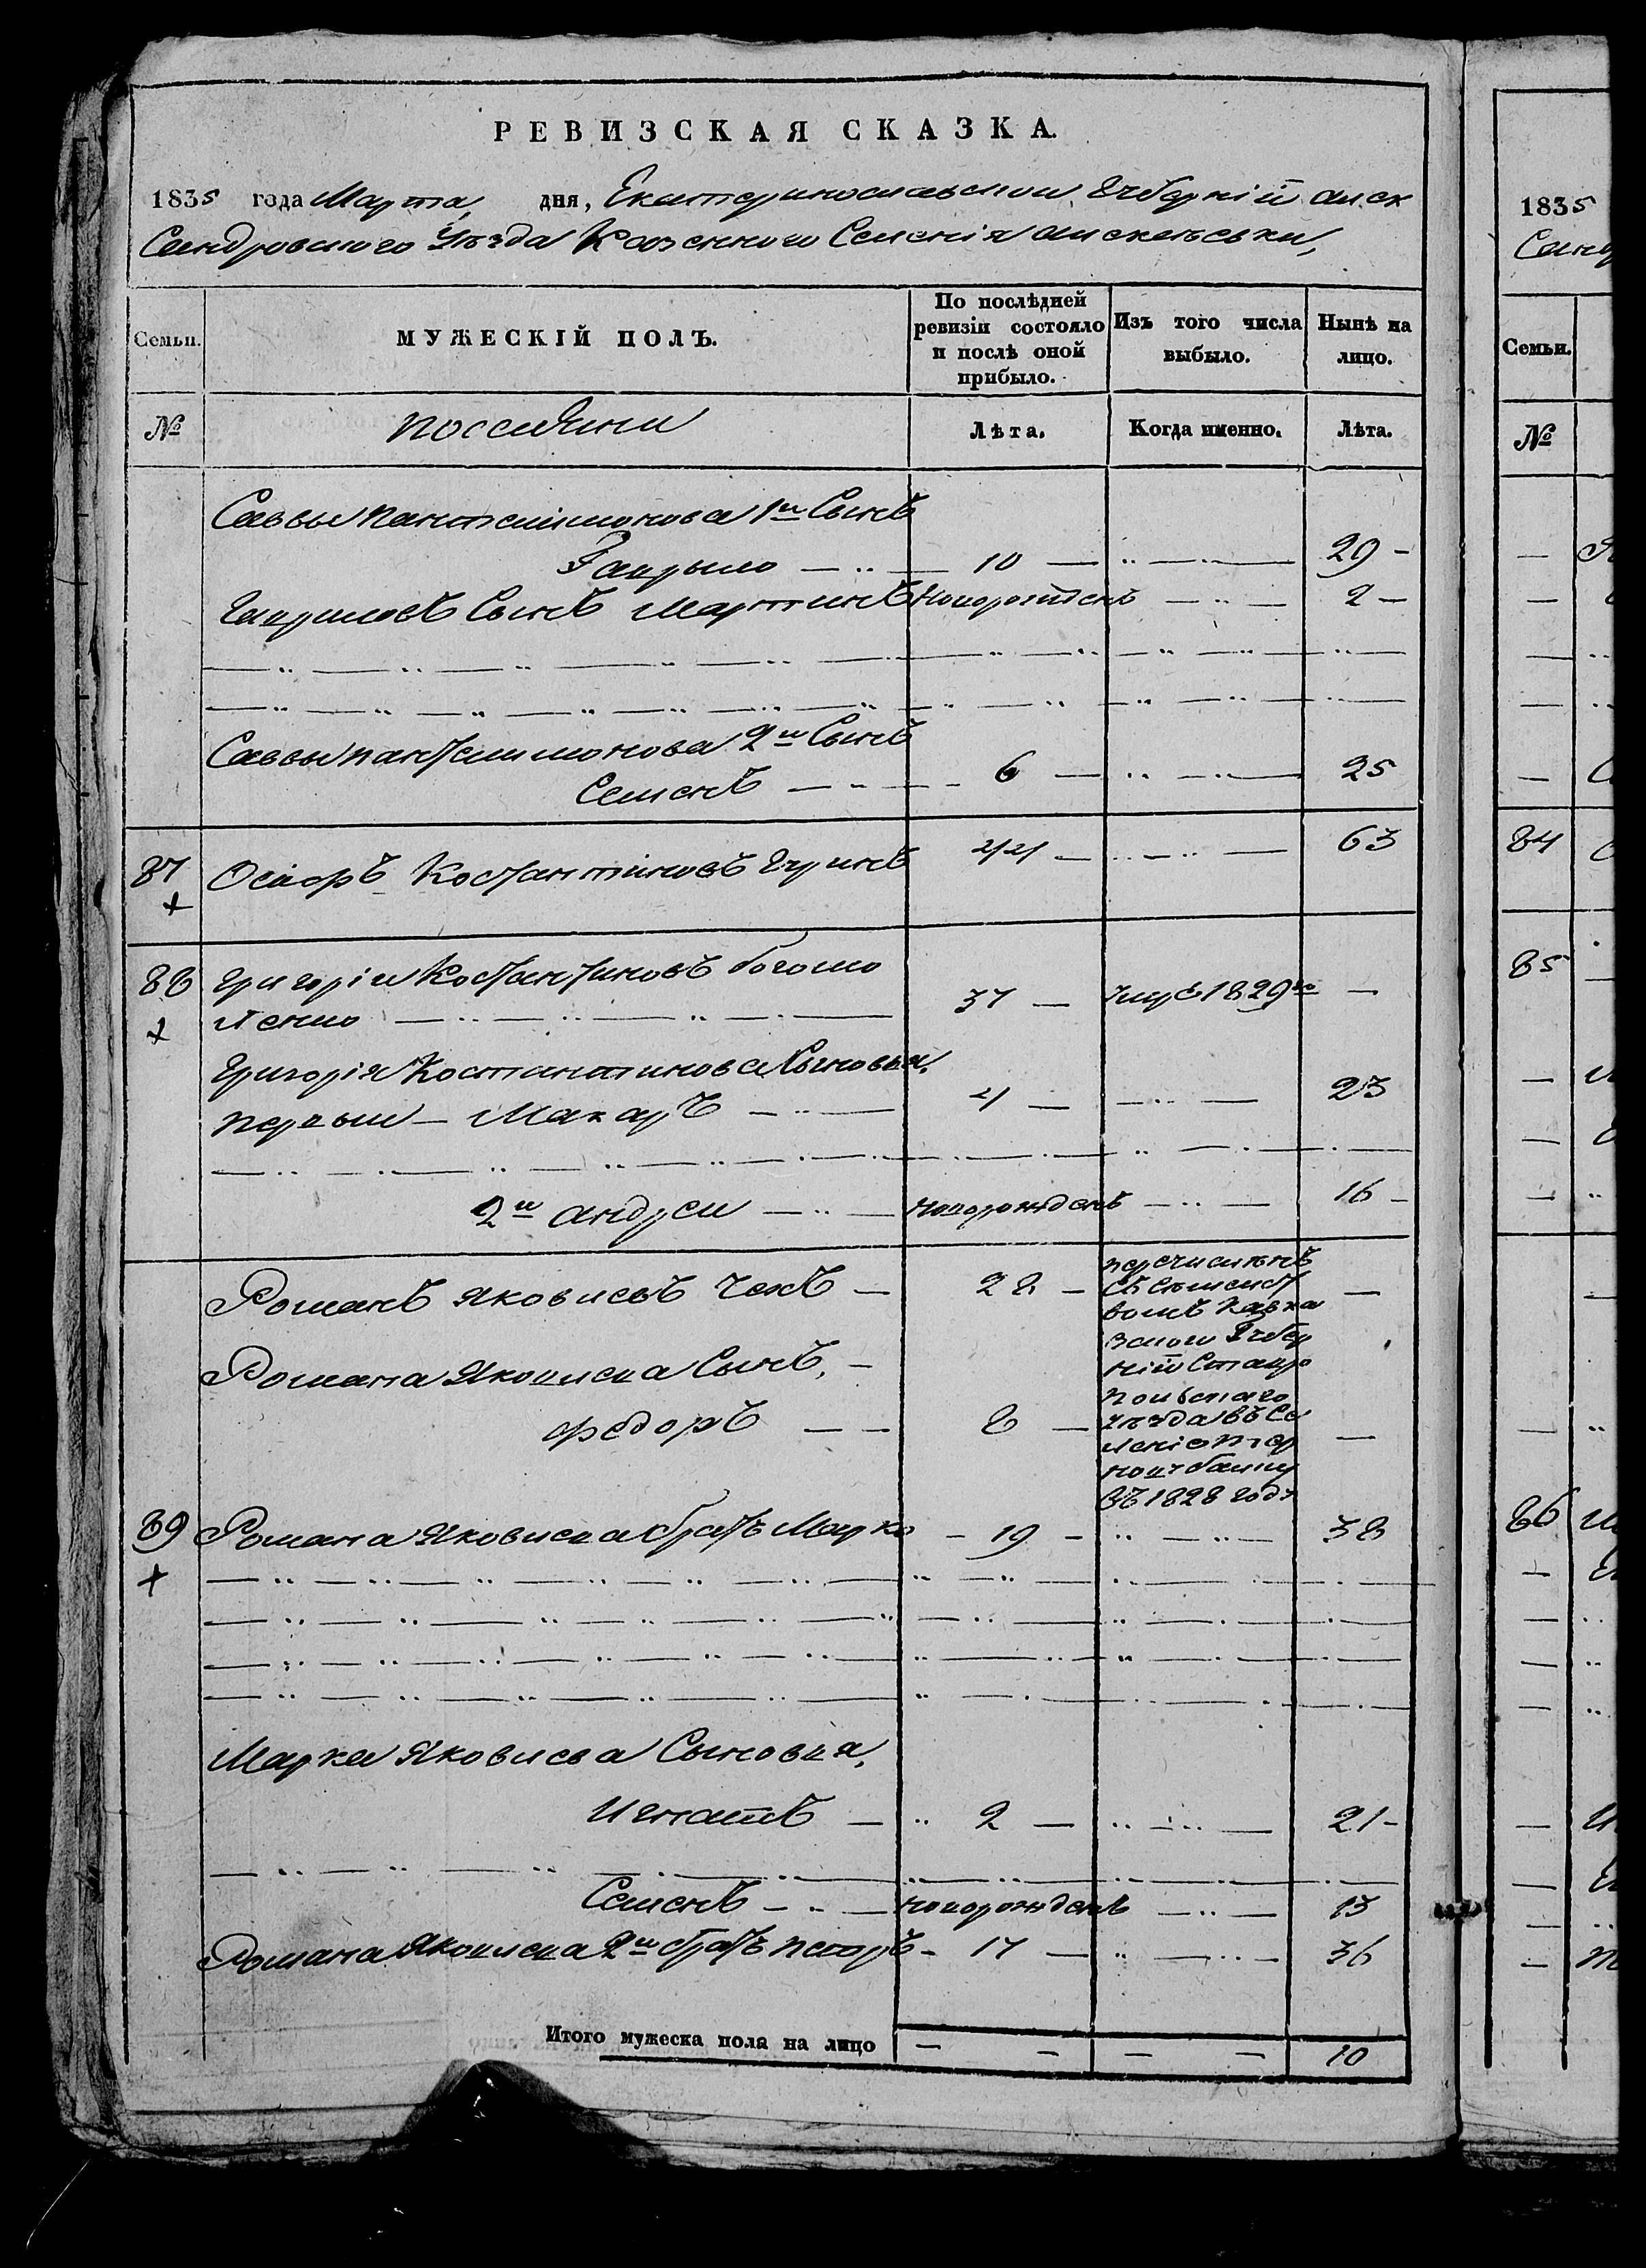 РЕВИЗСКАЯ СКАЗКА.
1835 года Марта, дня, Екатеринославской Губерніи Алек
сандровского Уезда Казенного Селенія
Семьи. МУЖЕСКІЙ ПОЛЪ. По послѣдней ревизіи состояло и послѣ оной прибыло. Изъ того числа выбыло. Нынѣ на лицо.
№ Лѣта. Когда именно. Лѣта.
Саввы Пантелимонова 1й Сынъ
Гаврыло 10 29
Гавриловъ Сынъ Мартинъ новорожденъ 2
Саввы Пантелимонова 2й Сынъ
Семенъ 6 25
87 Осипъ Костантіновъ 44 63
88 Григорій Костантиновъ богомо
ленко 37 умр. 1829го
Григорія Костантинова Сыновья,
первый Макаръ 4 23
2й андрей новорожденъ 16
Романъ Яковлевъ 28 перечисленъ
съ семейст
вомъ Кавка
зкой Губер
ніи Ставро
Романа Яковлева Сынъ,
польскаго
федоръ 8 уезда въ Се
леніе
въ 1828 году
89 Романа Яковлева братъ Марко 19 38
Марка Яковлева Сыновья,
Игнатъ 2 21
Семенъ новорожденъ 13
Романа Яковлева 2й братъ Петръ 17 36
Итого мужеска пола на лицо 10
1835
Семьи.
№
84
85
86